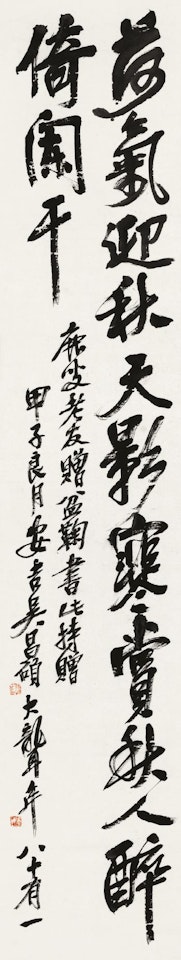 荷氣迎秋天影寒賞秋人醉
倚闌干
叟老友贈盆鞠書此持贈
甲子良月安吉吳昌碩大聾年八十有一